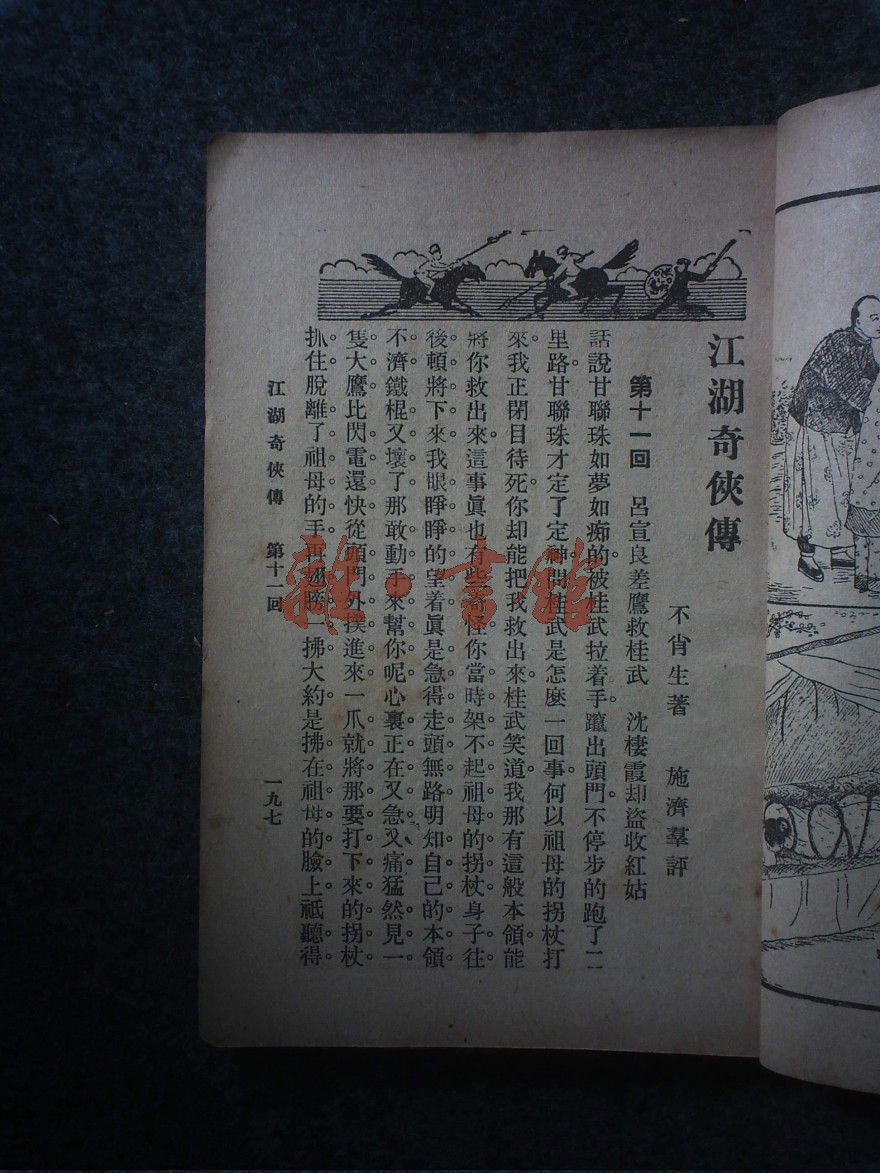 江湖奇俠傳
不肖生著　施濟羣評
第十一回　呂宣良差鷹救桂武　沈棲霞却盜收紅姑
話說甘聯珠如夢如痴的被桂武拉着手躥出頭門不停步的跑了一二
里路甘聯珠才定了定神問桂武是怎麼一回事何以祖母的拐杖打
來我正閉目待死你却能把我救出來桂武笑道我那有這般本領能
將你救出來這事眞也有些奇怪你當時架不起祖母的拐杖身子往
後頓將下來我眼睜睜的望着眞是急得走頭無路明知自己的本領
不濟鐵棍又壞了那敢動手來幫你呢心裏正在又急又痛猛然見一
隻大鷹比閃電還快從頭門外撲進來一爪就將那要打下來的拐杖
抓住脫離了祖母的手再翅膀一拂大約是拂在祖母的臉上祗聽得
江湖奇俠傳　第十一回　一九七
雜·書館